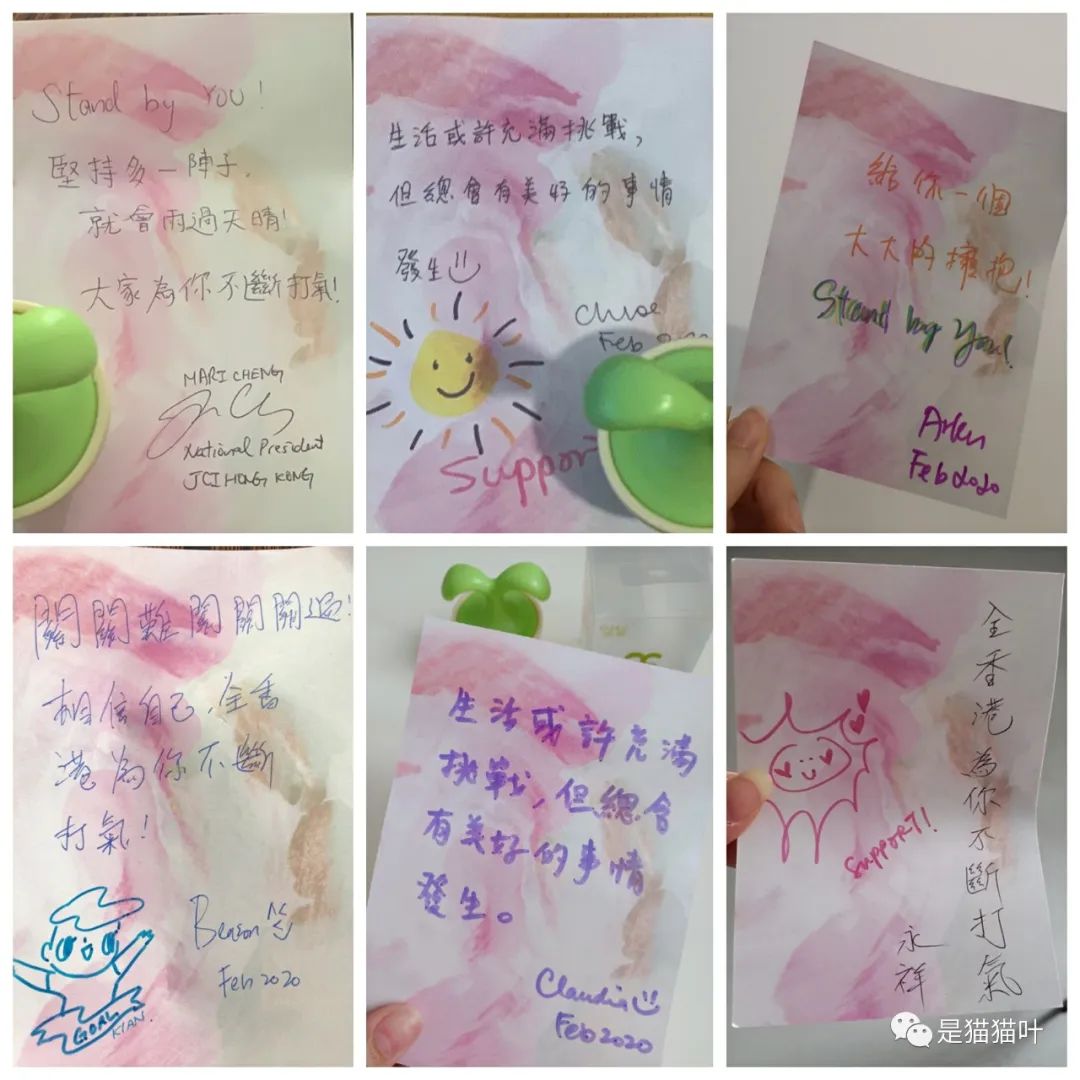 Stand by YOU!
堅持多一陣子,
就會雨過天晴!
大家為你不斷打氣!
MARI CHENG
National President
JCI HONG KONG
生活或許充滿挑戰,
但總會有美好的事情
發生
Chloe
Feb
Support
給你一個
大大的擁抱!
Stand by You!
Feb 2020
關關難關關關過!
相信自己,全香
港為你不斷
打氣!
Beason
Feb 2020
GOAL
KIAN.
生活或許充滿
挑戰,但總會
有美好的事情
發生。
Claudia
Feb 2020
全香港為你不斷打氣
永祥
SUPPORT!
是猫猫叶